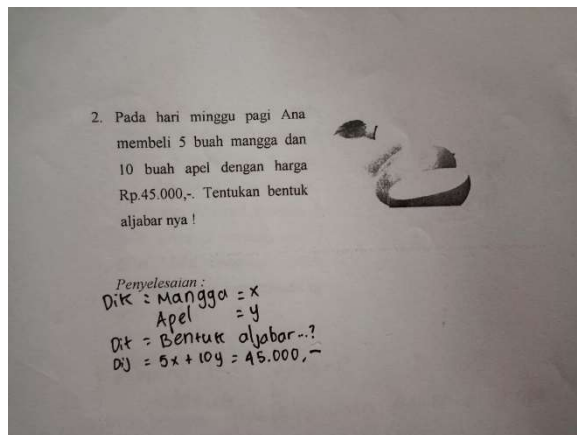 2. Pada hari minggu pagi Ana
membeli 5 buah mangga dan
10 buah apel dengan harga
Rp.45.000,-. Tentukan bentuk
aljabar nya !
Penyelesaian :
Dik : Mangga = x
Apel = y
Dit = Bentuk aljabar...?
Dij = 5x + 10y = 45.000,-